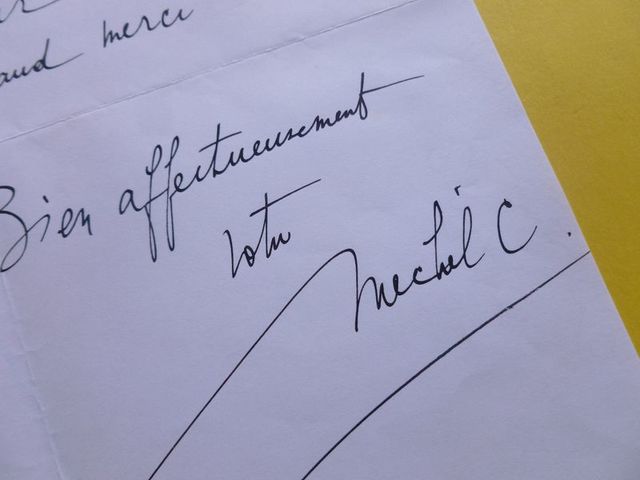 and merci
Bien affectueusement
votre
Michel C.